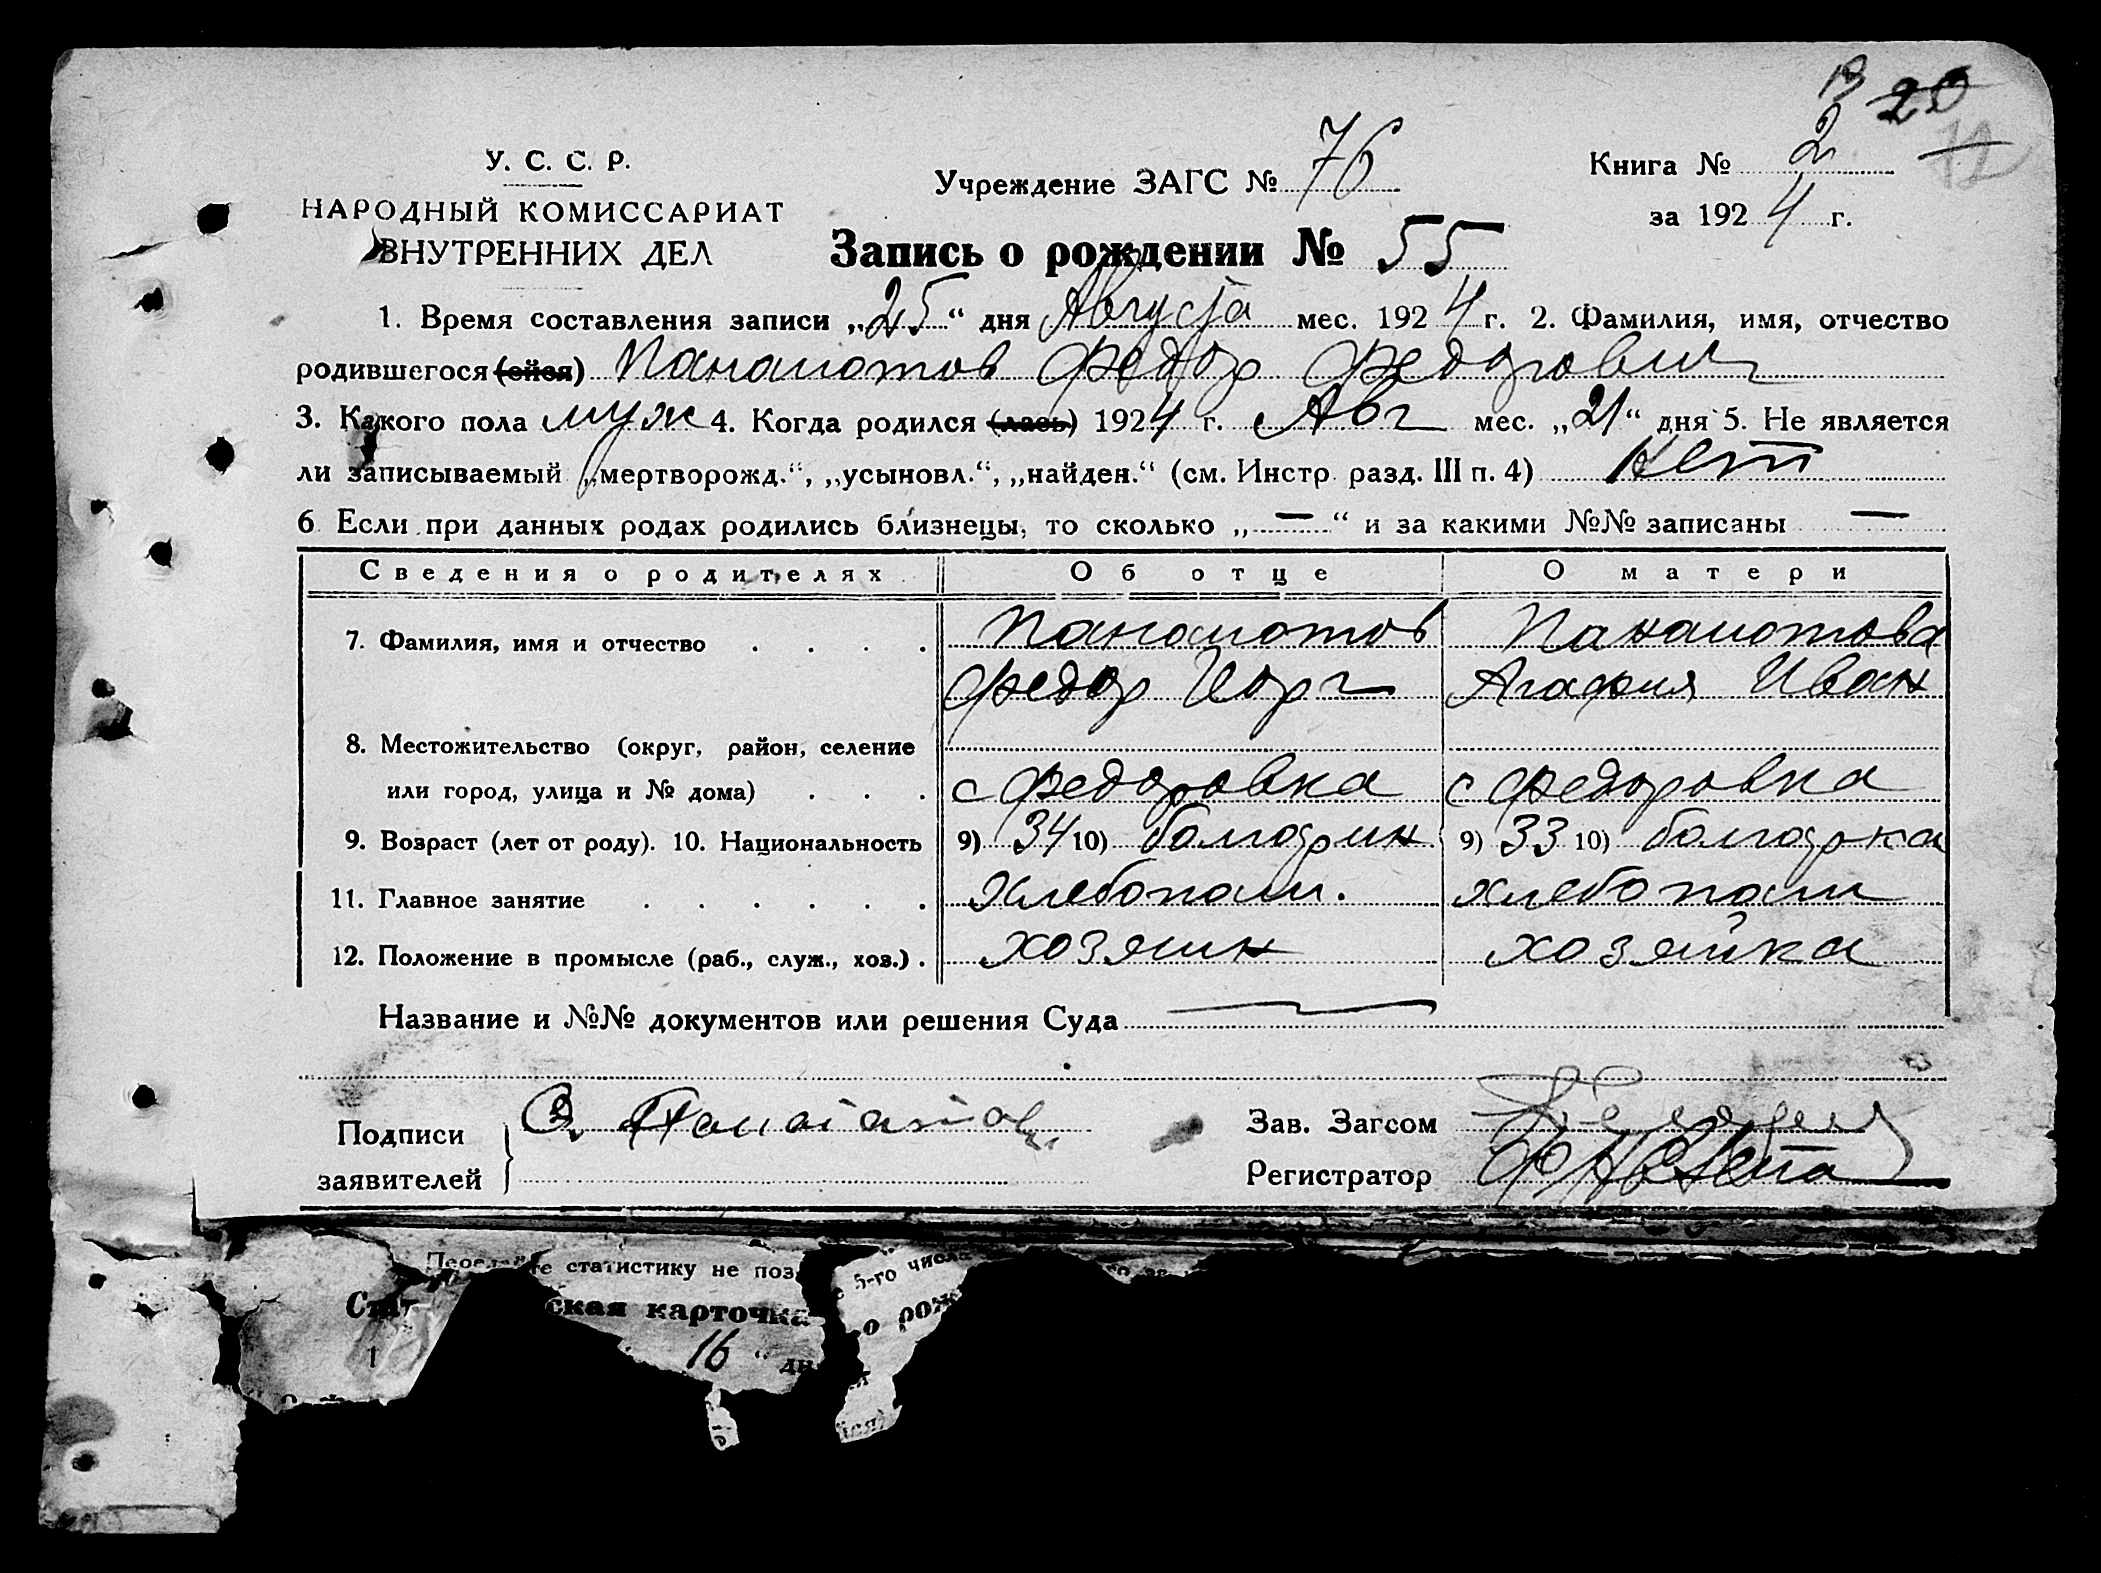 13 20
12
У. С. С. Р.
НАРОДНЫЙ КОМИССАРИАТ
ВНУТРЕННИХ ДЕЛ
Учреждение ЗАГС № 76
Книга № 2
за 1924 г.
Запись о рождении № 55
1. Время составления записи „25“ дня Августа мес. 1924 г. 2. Фамилия, имя, отчество
родившегося (ейся) Панаиотов Федор Федорович
3. Какого пола муж 4. Когда родился (лась) 1924 г. Авг мес. „21“ дня 5. Не является
ли записываемый „мертворожд.“, „усыновл.“, „найден.“ (см. Инстр. разд. III п. 4) нет
6. Если при данных родах родились близнецы, то сколько „—“ и за какими №№ записаны —
Сведения о родителях Об отце О матери
7. Фамилия, имя и отчество . . . . Панаиотов Панаиотова
Федор Иорг Агафия Иван
8. Местожительство (округ, район, селение
или город, улица и № дома) . . . с Федоровка с Федоровка
9. Возраст (лет от роду). 10. Национальность 9) 34 10) болгарин 9) 33 10) болгарка
11. Главное занятие . . . . . . Хлебопаш. хлебопаш
12. Положение в промысле (раб., служ., хоз.) . хозяин хозяйка
Название и №№ документов или решения Суда —
Подписи
заявителей
Зав. Загсом
Регистратор
статистику не поз 5-го числа
Стат ская карточка о рож
1 16 “ дн